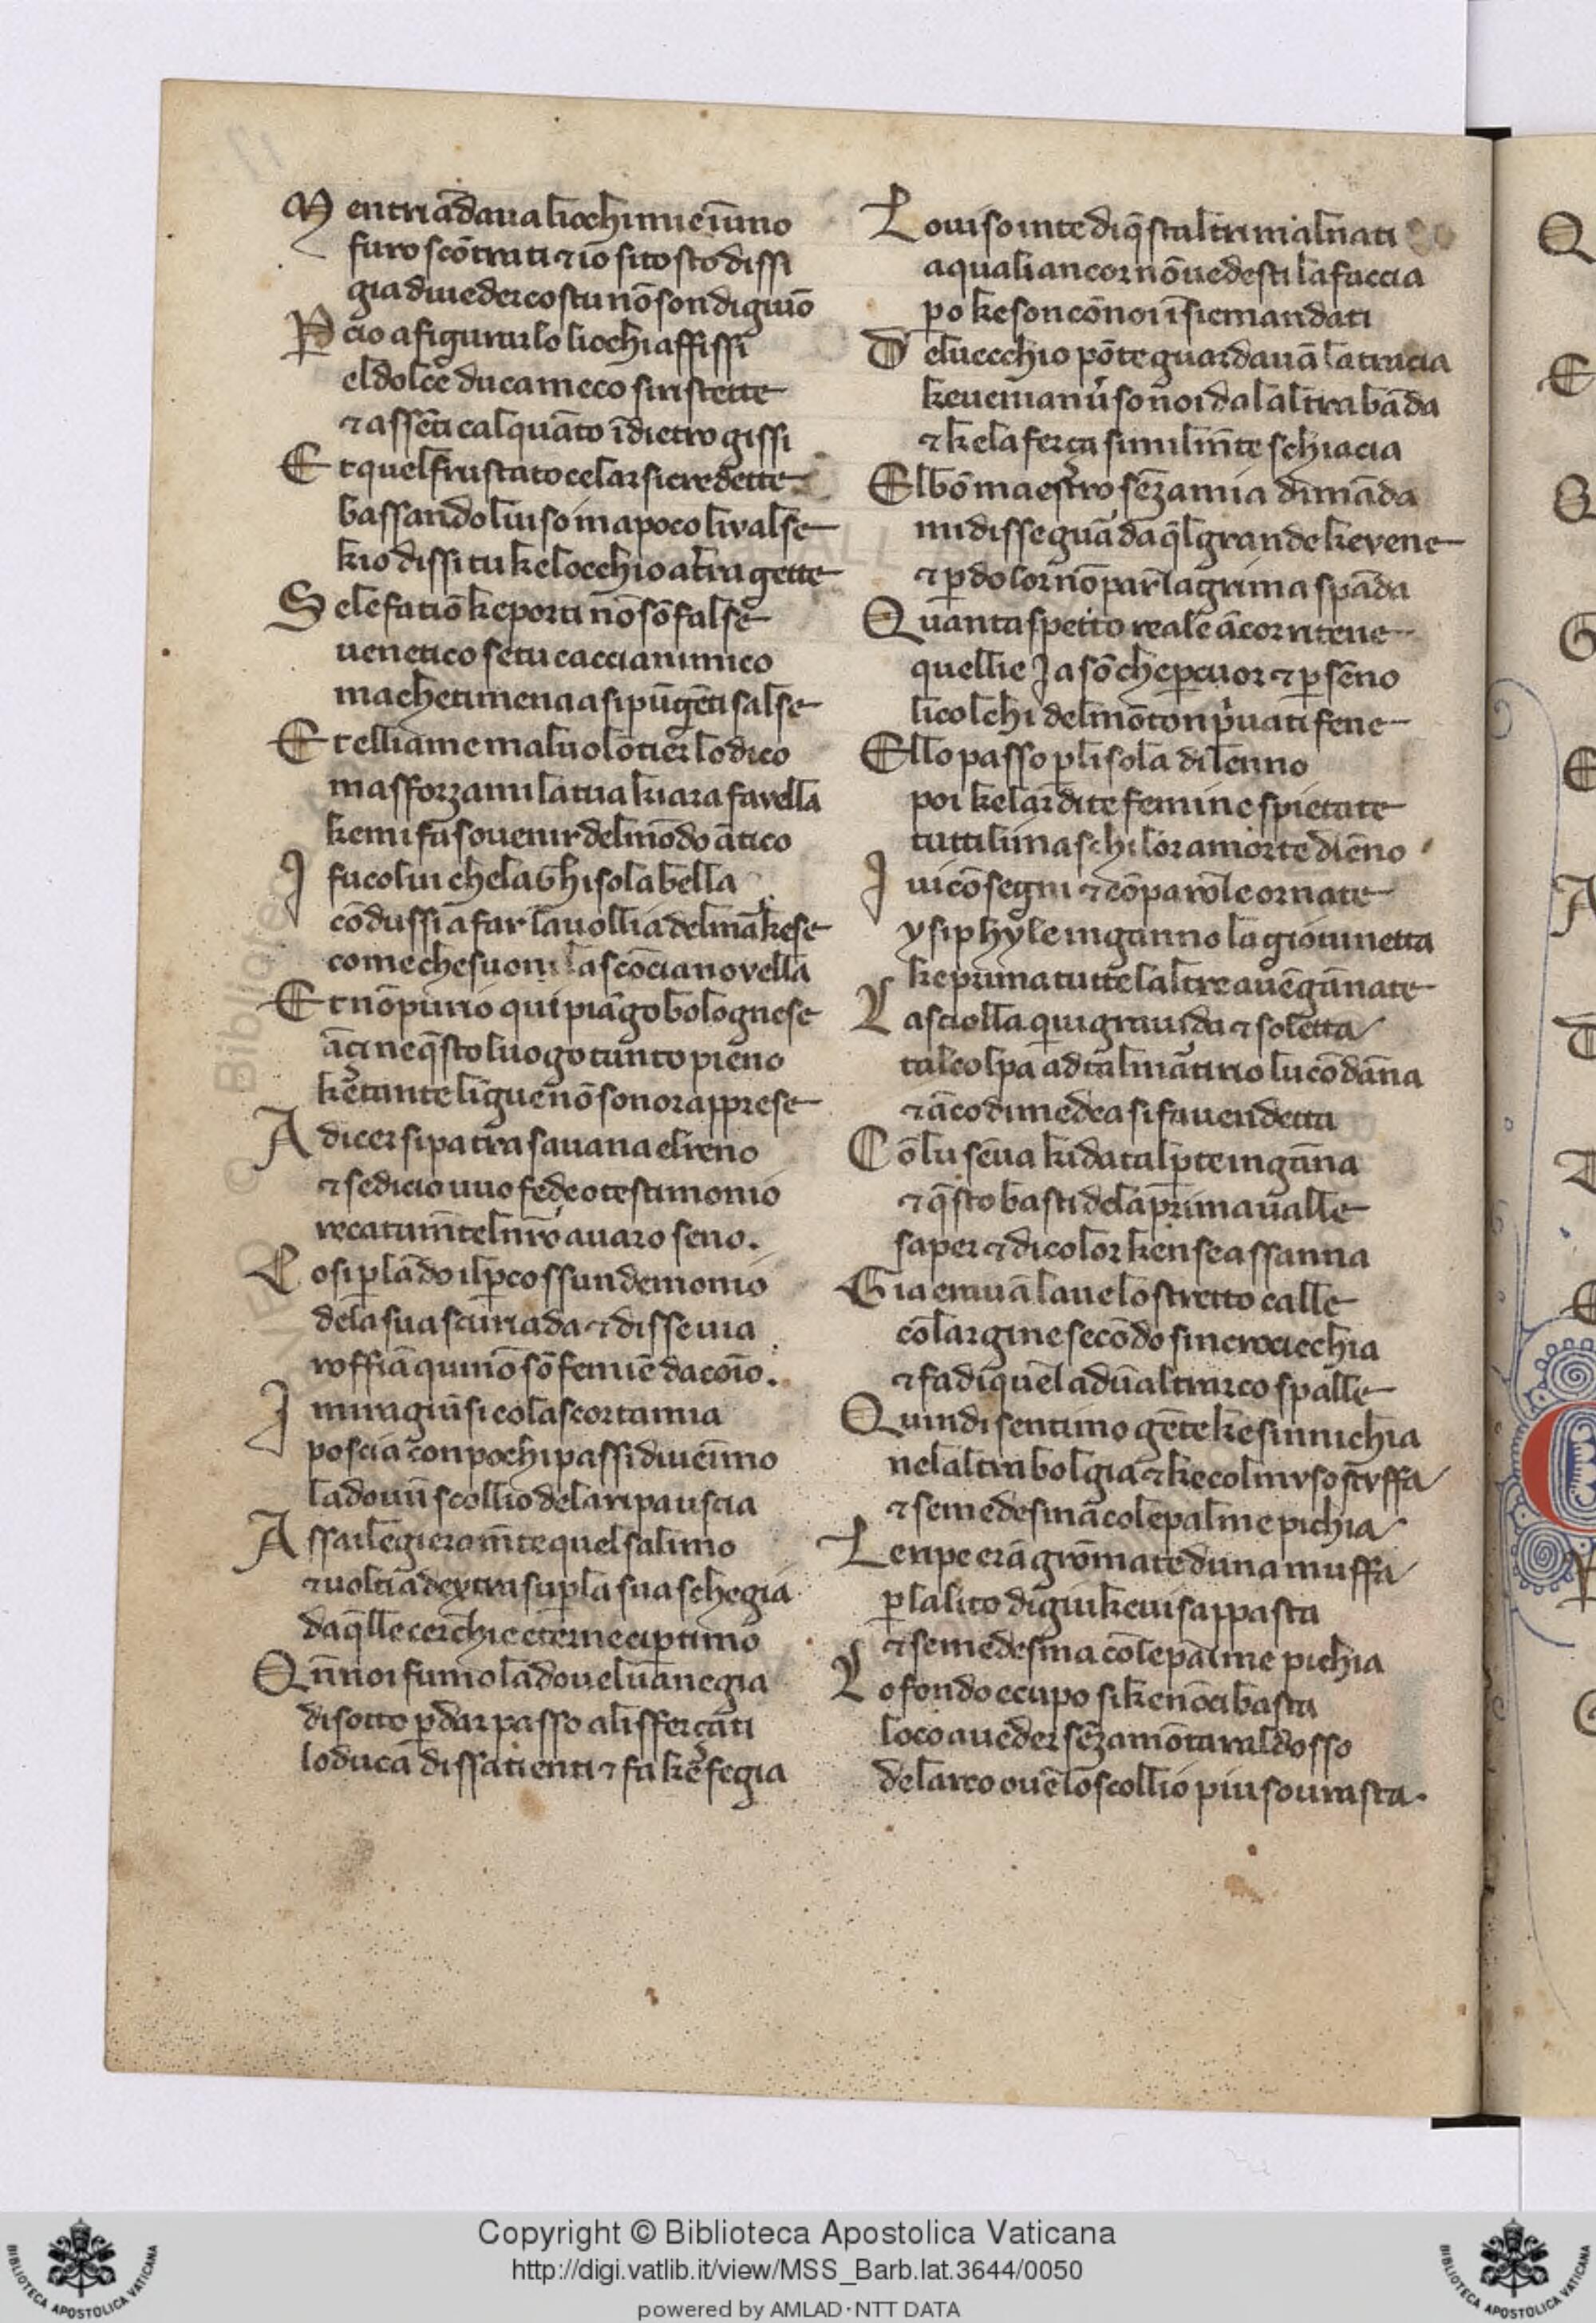 M entriādaua liocchi mie iūno
furo scōtrati ⁊ io si tosto dissi
gia di ueder costui nō son digiuō
P̱ cio a figurarlo liocchi affissi
el dolce duca meco si ristette
⁊ assētì cal quāto īdietro gissi
E t quel frustato celar si credette
bassandol uiso ma poco li valse
kio dissi tu ke locchio a t̄ra gette
S ele fatiō ke porti nō sō false
uenetico se tu caccianimico
ma che ti mena a si pūgēti salse
E t elli a me mal uolōtier lo dico
ma sforzami la tua kiara favella
ke mi fa souenir del mōdo ātico
I fu colui che la Ghisola bella
cōdussi a far la uollia del mākese
come che suoni la scōcia novella
E t nō pur io qui piāgo bolognese
āçi ne q̄sto luogo tanto pieno
kē tante līgue nō son or apprese
A dicer sipa tra sauana el reno
⁊ se di cio uuo fede o testimonio
recatim̄te l nr̄o auaro seno.
C osi p̱lādo il p̱cosse un demonio
de la sua scuriada ⁊ disse uia
roffiā qui nō sō femīe da coīo.
I mi ragiūsi co la scorta mia
poscia con pochi passi diuenīmo
la doū ū scollio de la ripa uscia
A ssai legieram̄te quel salimo
⁊ uolti a dextra su p̱ la sua schegia
da q̄lle cerchie eterne ci p̱timo
Q n̄ noi fumo la doue l uānegia
di sotto p̱ dar passo ali sferçati
lo duca dissatienti ⁊ fa kē fegia
L o uiso in te di q̄staltri mal nati
a quali ancor nō uedesti la faccia
po ke son cō noi īsieme andati
D el uecchio pōte guardauā la tracia
ke uenia nūso noi da laltra bāda
⁊ ke la ferça similm̄te schiacia
E l bō maestro sēza mia dimāda
mi disse guāda q̄l grande ke vene
⁊ p̱ dolor nō par lagrima spāda
Q uanta spetto reale ācor ritene
quelli e Jasō che p̱ cuor ⁊ p̱ sēno
li colchi del mōton p̄uati fene
E llo passo p̱ lisola di lenno
poi ke lardite femine spietate
tutti li maschi lor a morte diēno
I ui cō segni ⁊ cō parole ornate
ysiphyle inganno la giouinetta
ke prima tutte laltre auēgānate
L asciolla quiui grauida ⁊ soletta
tal colpa ad tal martirio lu cōdāna
⁊ āco di medea si fa uendetta
C ō lu sēua ki da tal p̱te ingāna
⁊ q̄sto basti de la prima ualle
saper ⁊ di color ken se assanna
G ia erauā la ue lo stretto calle
cō largine secōdo sincrocicchia
⁊ fa di quel ad ūaltrarco spalle
Q uindi sentimo gēte ke si nichia
nelaltra bolgia ⁊ ke col mvso stvffa
⁊ se medesma cole palme pichia
L e ripe erā grōmate duna muffa
p̱ lalito di giu ke ui sappasta
⁊ se medesma cole palme pichia
L o fondo e cupo si ke nō ci basta
loco a ueder sēza mōtar al dosso
de larco ouē lo scollio piu sourasta.
Copyright © Biblioteca Apostolica Vaticana
http://digi.vatlib.it/view/MSS_Barb.lat.3644/0050
powered by AMLAD·NTT DATA